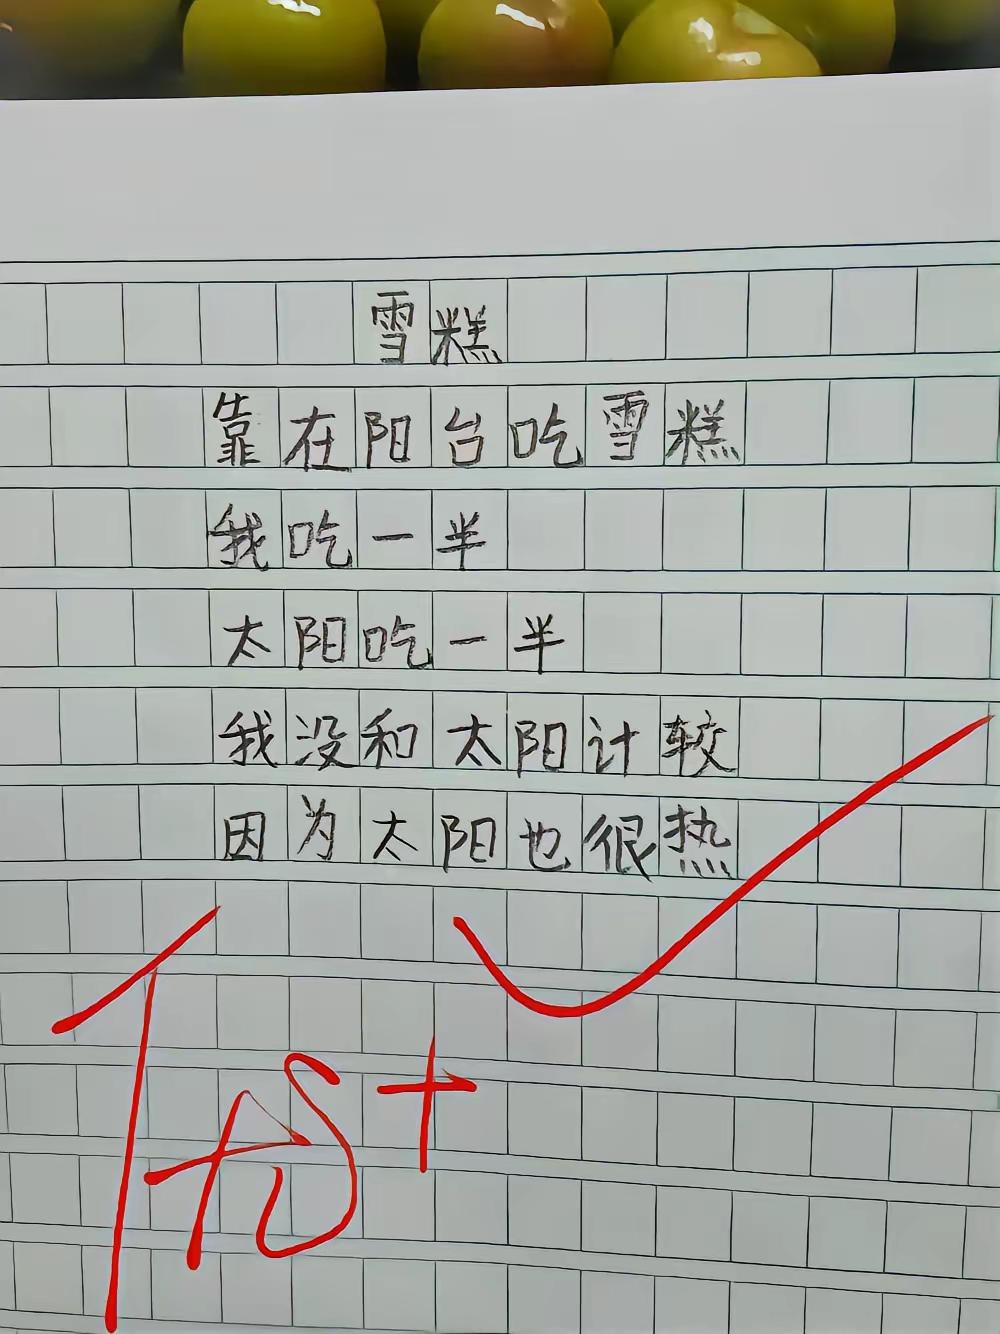 雪糕
靠在阳台吃雪糕
我吃一半
太阳吃一半
我没和太阳计较
因为太阳也很热